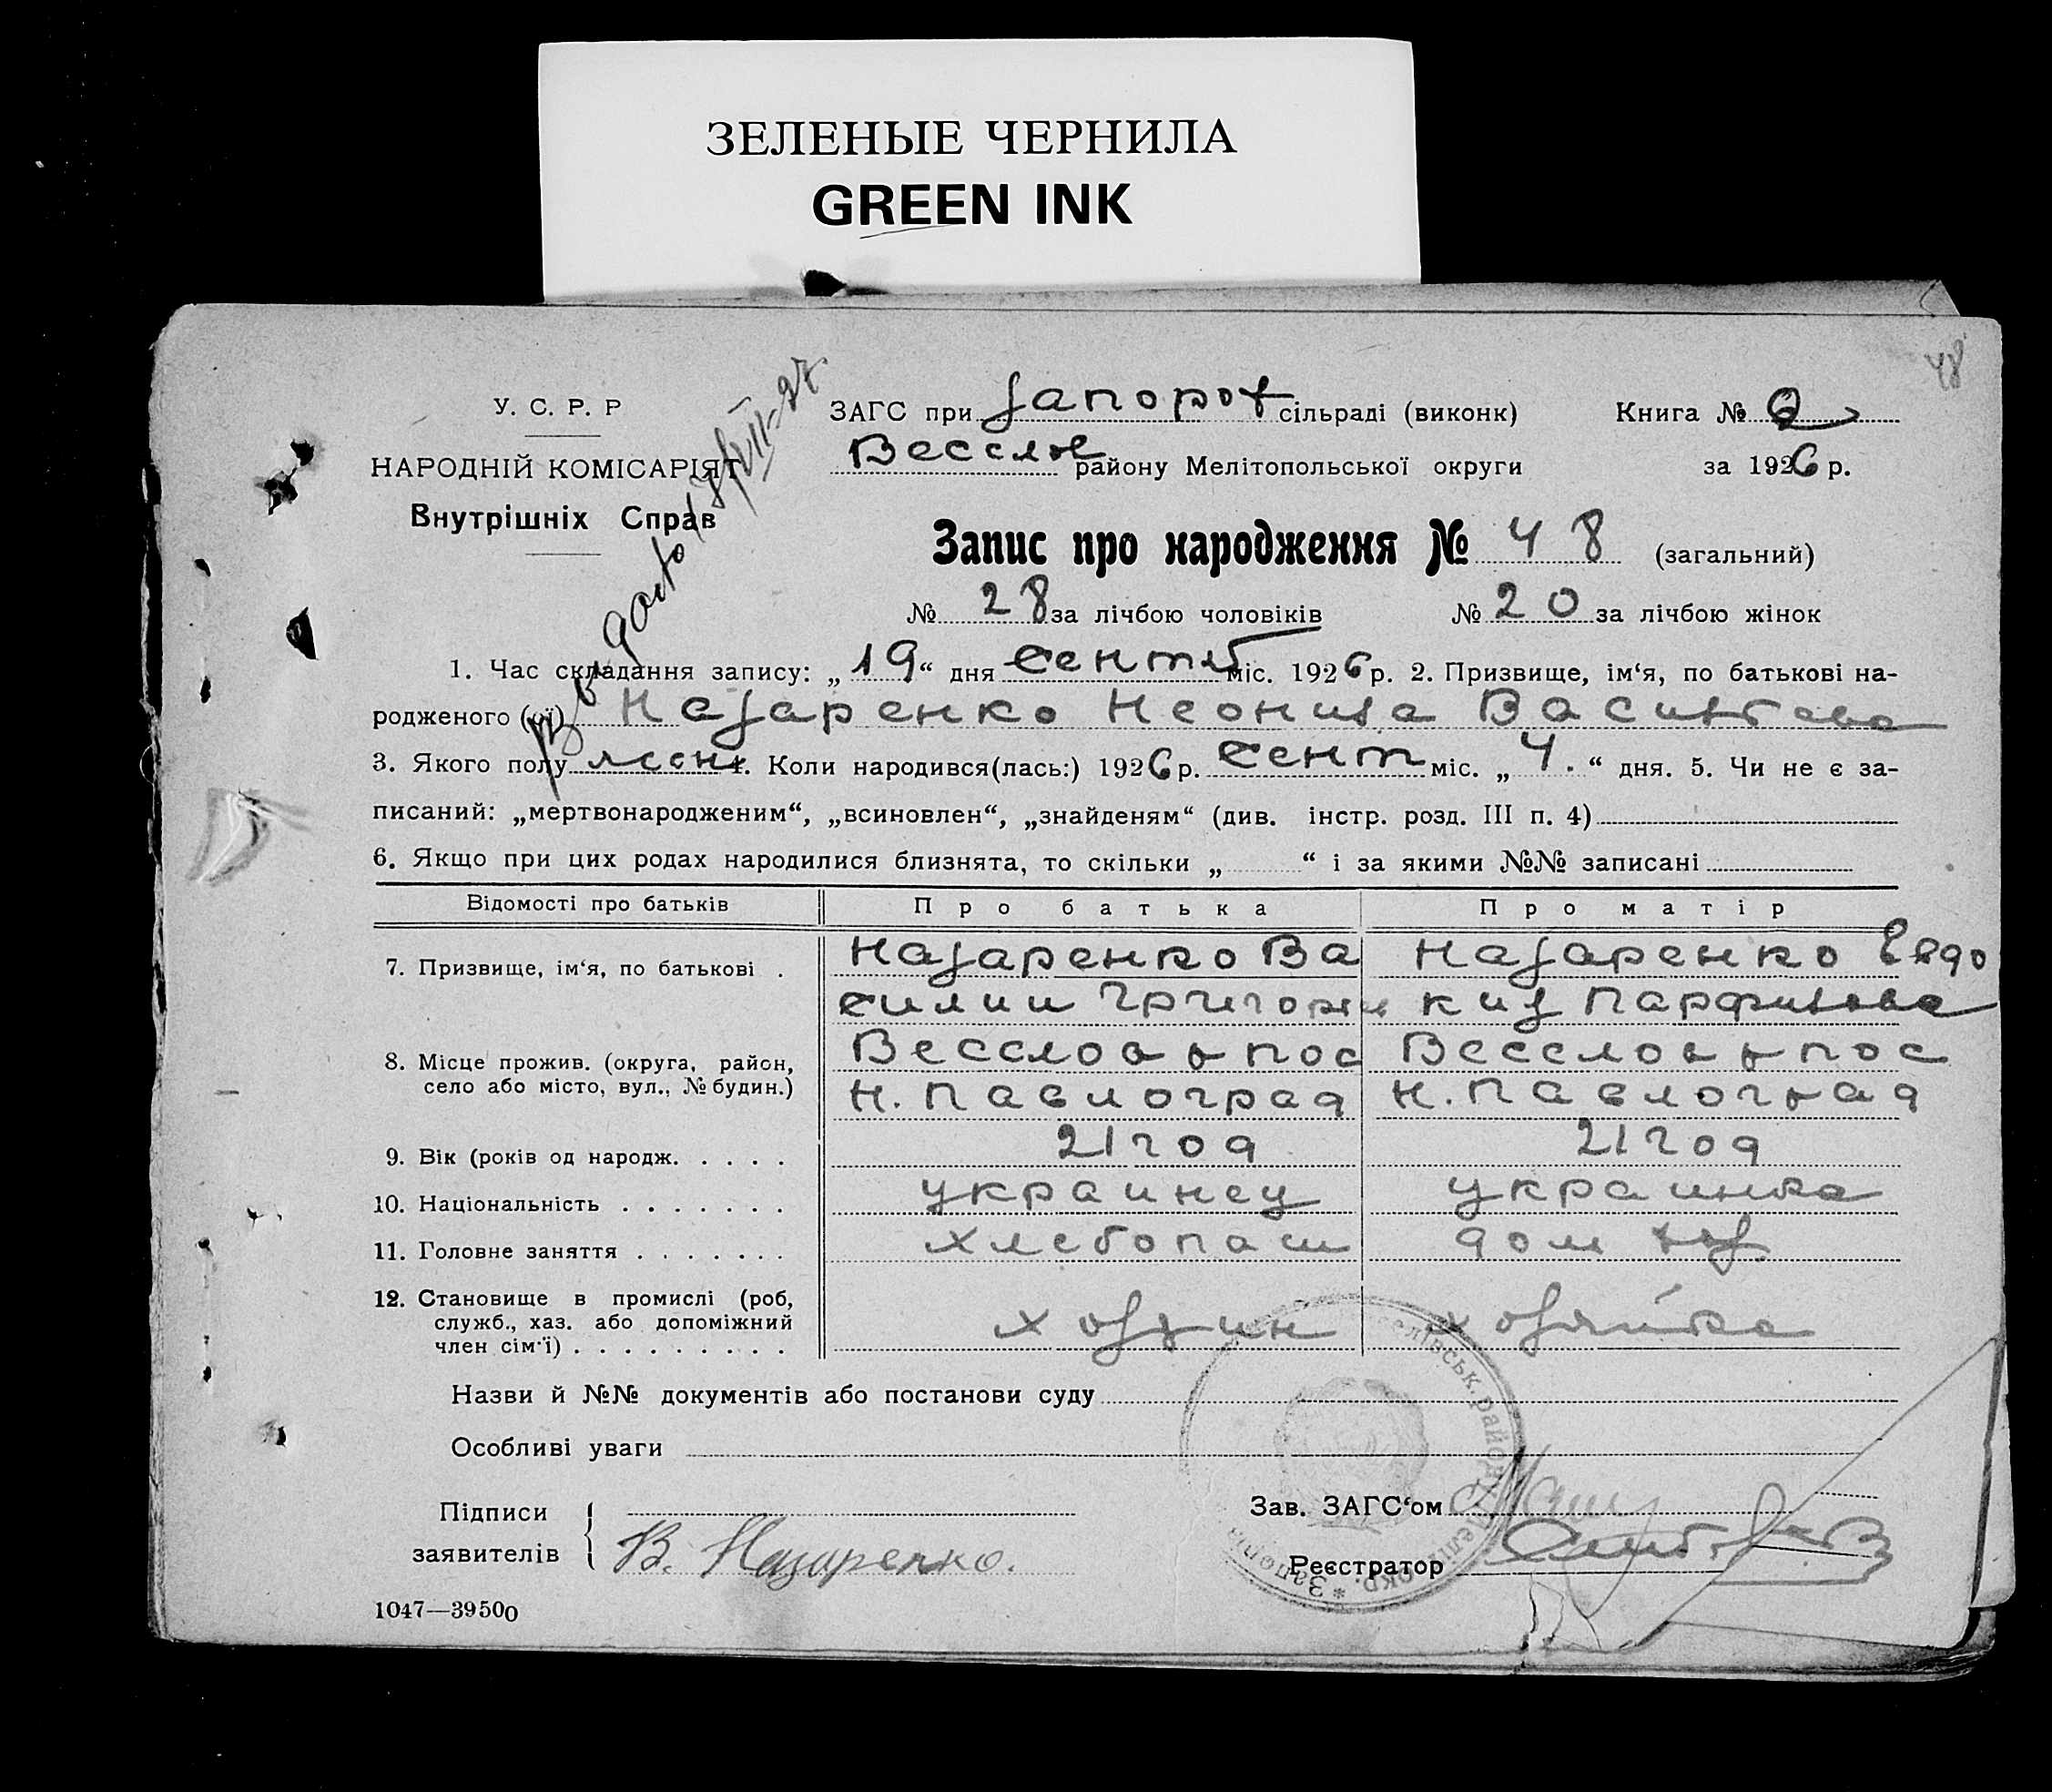 ЗЕЛЕНЫЕ ЧЕРНИЛА
GREEN INK
48
У. С. Р. Р
НАРОДНІЙ КОМІСАРІЯТ
Внутрішніх Справ
ЗАГС при Запорож сільраді (виконк) Книга № 2
Веселов району Мелітопольської округи за 1926 р.
Запис про народження № 48 (загальний)
№ 28 за лічбою чоловіків № 20 за лічбою жінок
1. Час складання запису: „19“ дня сентяб міс. 1926 р. 2. Призвище, ім‘я, по батькові на-
родженого (ої) Назаренко Неонила Васильева
3. Якого полу женс 4. Коли народився(лась:) 1926 р. сент міс. „4.“ дня. 5. Чи не є за-
писаний: „мертвонародженим“, „всиновлен“, „знайденям“ (див. інстр. розд. III п. 4)
6. Якщо при цих родах народилися близнята, то скільки „ “ і за якими №№ записані
Відомості про батьків Про батька Про матір
7. Призвище, ім‘я, по батькові . Назаренко Ва Назаренко Евдо
силий Григорь кия Парфилова
8. Місце прожив. (округа, район, Веселов р пос Веселов р пос
село або місто, вул., № будин.) Н. Павлоград Н. Павлоград
9. Вік (років од народж. . . . . 21 год 21 год
10. Національність . . . . . . . украинец украинка
11. Головне заняття . . . . . . . хлебопаш дом хоз
12. Становище в промислі (роб,
служб., хаз. або допоміжний хозяин хозяйка
член сім‘ї) . . . . . . . . .
Назви й №№ документів або постанови суду
Особливі уваги
Підписи
заявителів В. Назаренко.
Зав. ЗАГС‘ом
Реєстратор
1047—39500